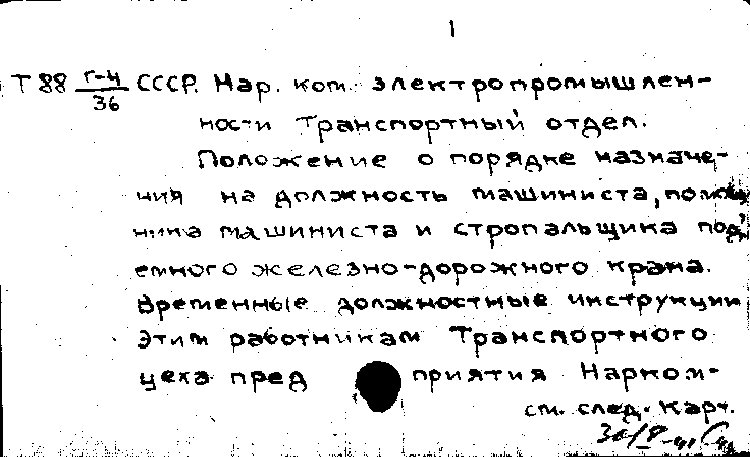 1
Т88 г-4/36 СССР. Нар. ком. электропромышлен-
ности Транспортный отдел.
Положение о порядке назначе-
ния на должность машиниста, помощ
ника машиниста и стропальщика под'
емного железно-дорожного крана.
Временные должностные инструкции
этим работникам Транспортного
цеха пред приятия Нарком-
см. след. карт.